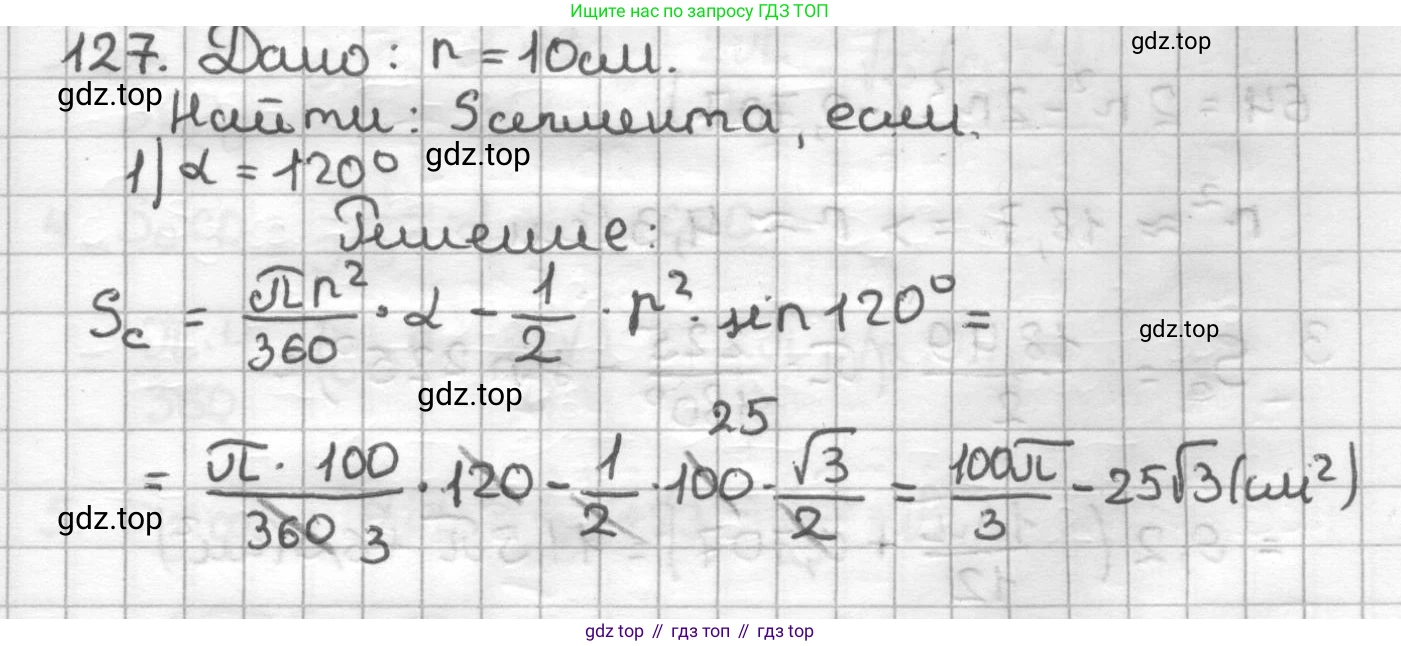 Ищите нас по запросу ГДЗ ТОП
127. Дано: r = 10см.
gdz.top
gdz.top
Найти: Sсегмента, если
1) α = 120° gdz.top
Решение:
Sс = πr²/360 · α - 1/2 · r² · sin 120° =
gdz.top
gdz.top
= π · 100/360 3 · 120 - 1/2 · 100 25 · √3/2 = 100π/3 - 25√3 (см²)
gdz.top
gdz top // гдз топ // gdz top